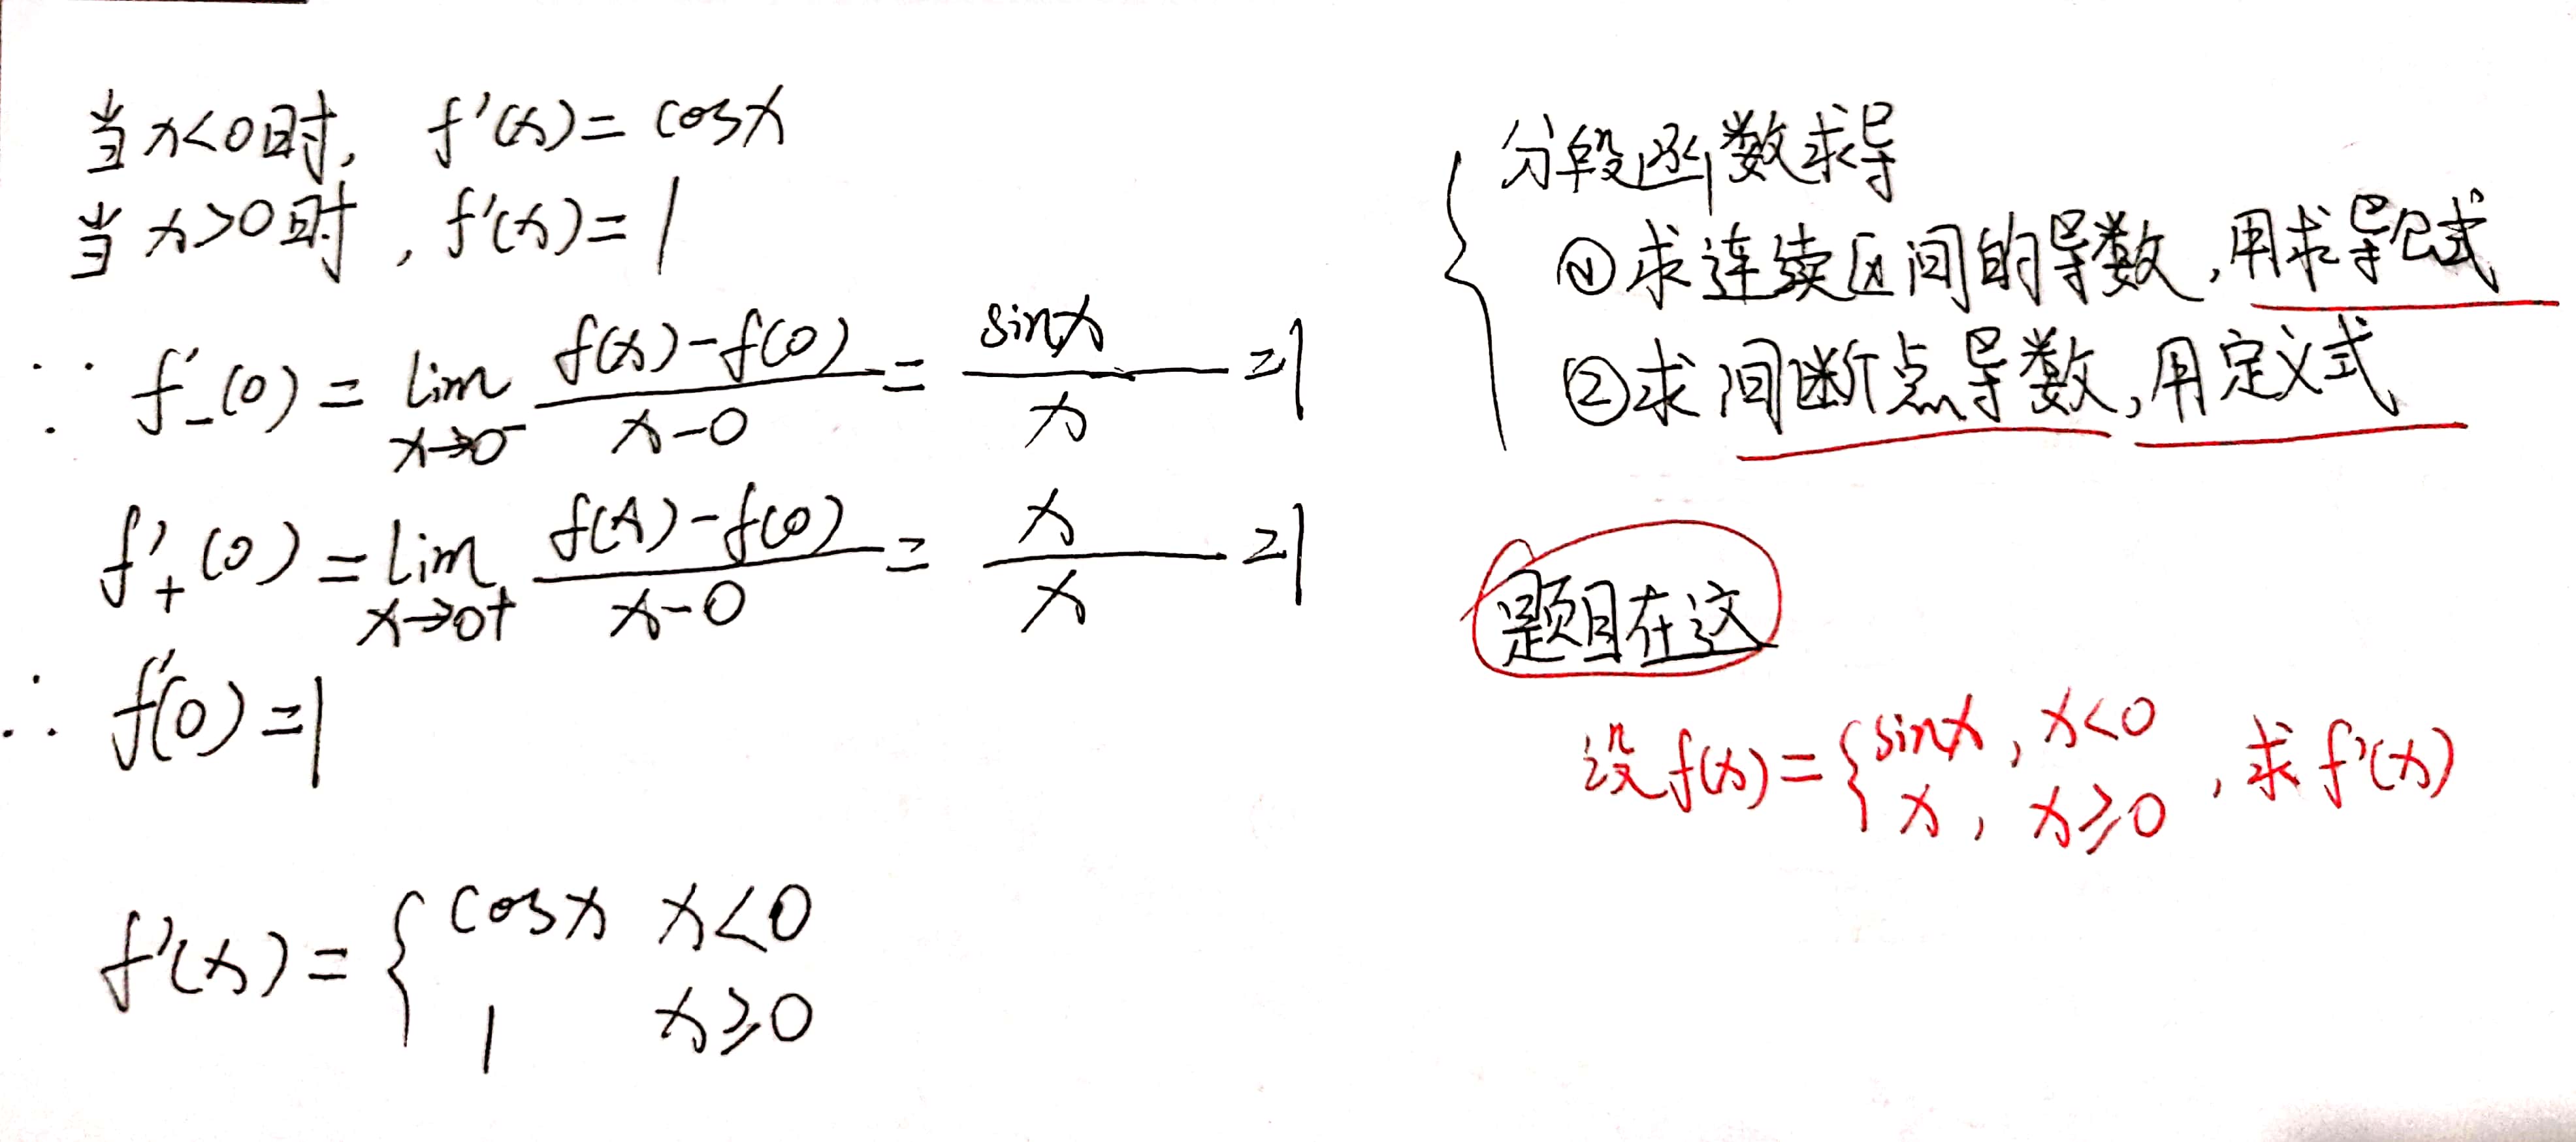 当x<0时, f'(x)=cosx
当x>0时, f'(x)=1
∵ f'₋(0) = lim x→0⁻ (f(x)-f(0))/(x-0) = sinx/x =1
f'₊(0) = lim x→0+ (f(x)-f(0))/(x-0) = x/x =1
∴ f'(0)=1
f'(x) = { cosx x<0
1 x≥0
{ 分段函数求导
①求连续区间的导数,用求导公式
②求间断点导数,用定义式
题目在这
设f(x)={ sinx, x<0
x, x≥0 , 求f'(x)